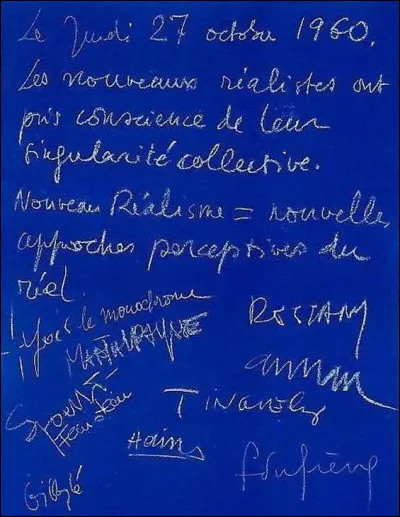 Le Jeudi 27 octobre 1960.
Les nouveaux réalistes ont
pris conscience de leur
singularité collective.
Nouveau Réalisme = nouvelles
approches perceptives du
réel.
Yves le monochrome
RESTANY
Martial RAYSSE
Arman
Spoerri
TINGUELY
Hains
Dufrêne
Villeglé